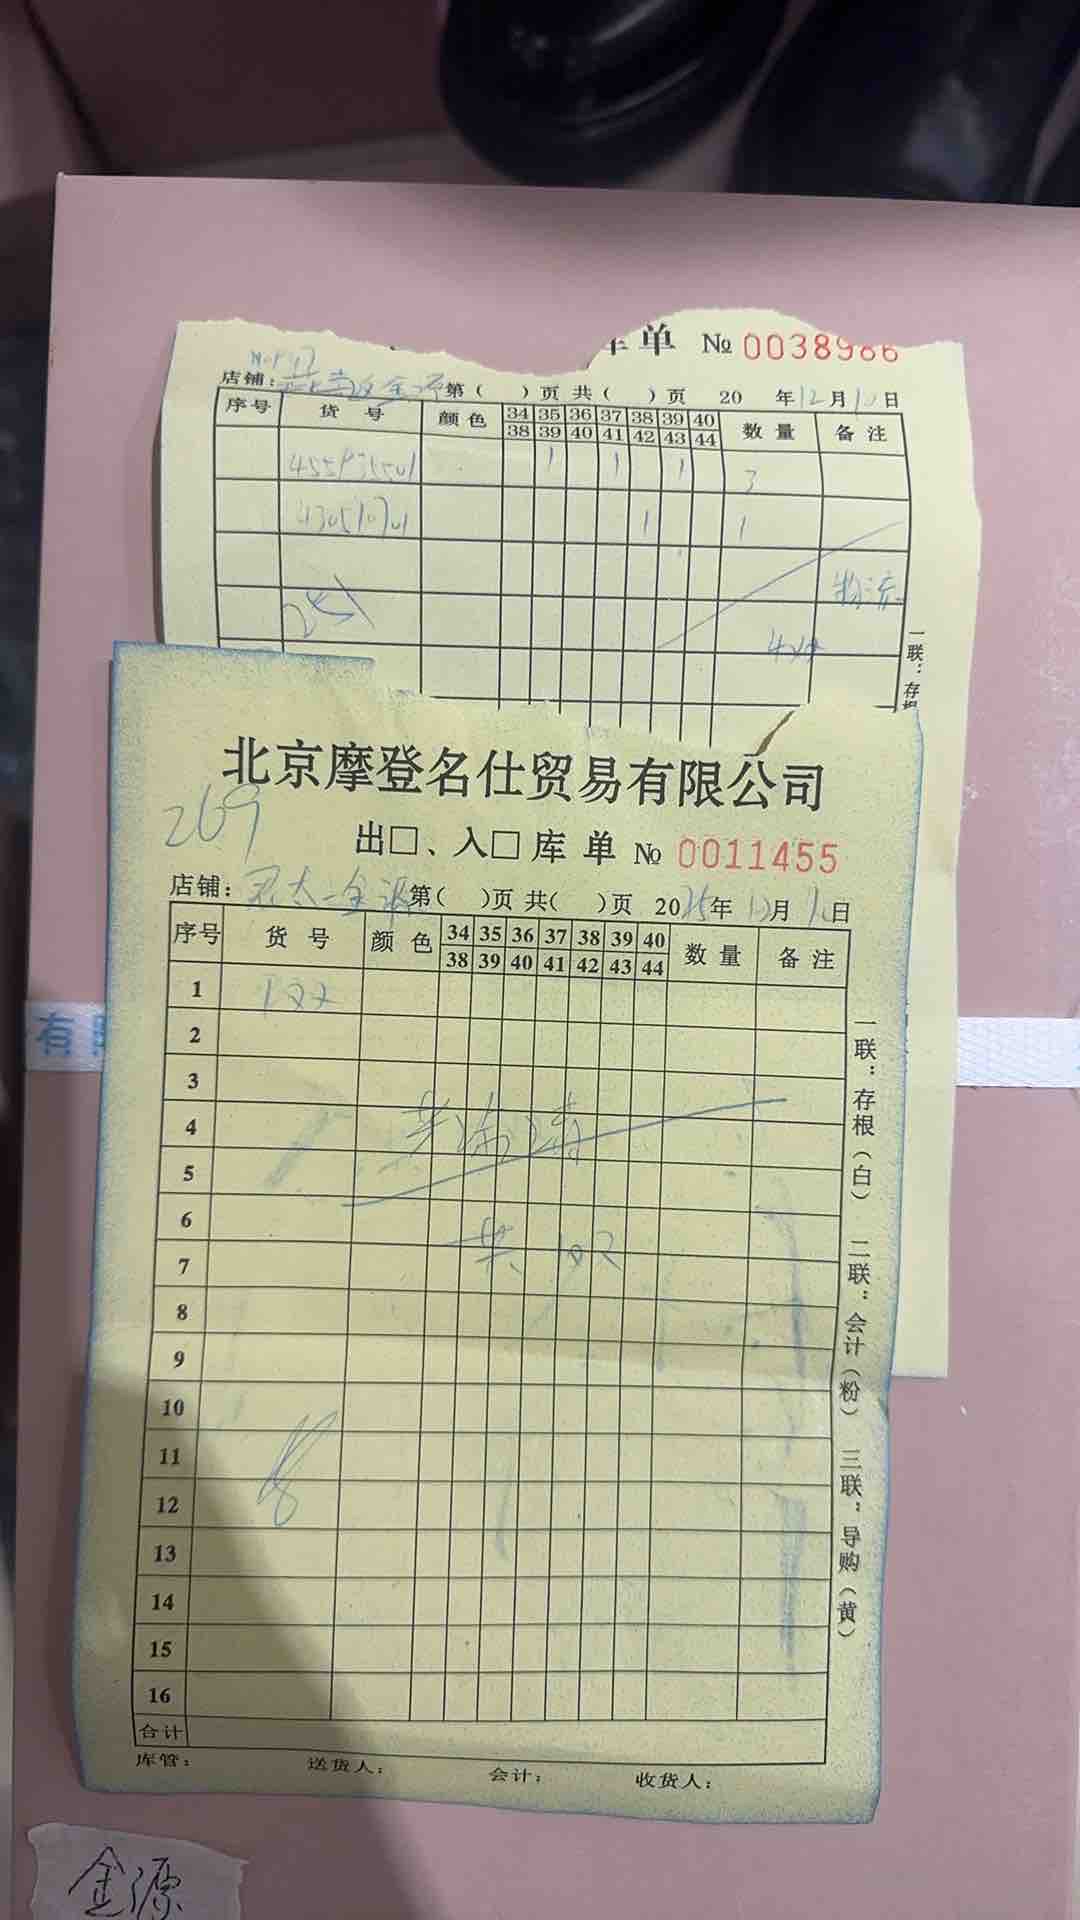 库单 № 0038986
店铺: 金源 第( )页 共( )页 20 年12月10日
序号 货号 颜色 34 35 36 37 38 39 40 数量 备注
38 39 40 41 42 43 44
1 1 1 3
1 1
物流
北京摩登名仕贸易有限公司
269
出□、入□库单 № 0011455
店铺: 金源 第( )页 共( )页 2025年12月10日
序号 货号 颜色 34 35 36 37 38 39 40 数量 备注
38 39 40 41 42 43 44
1
2
3
4
5
6
共102
7
8
9
10
11
12
13
14
15
16
合计
库管: 送货人: 会计: 收货人:
一联:存根(白) 二联:会计(粉) 三联:导购(黄)
一联:存根
有限
金源